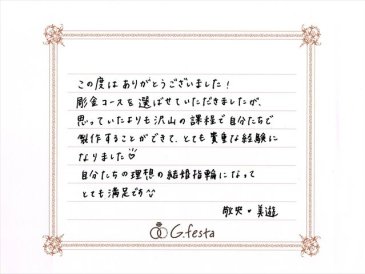 この度はありがとうございました!
彫金コースを選ばせていただきましたが、
思っていたよりも沢山の課程で自分たちで
製作することができて、とても貴重な経験に
なりました♡
自分たちの理想の結婚指輪になって
とても満足です
美遊
G.festa